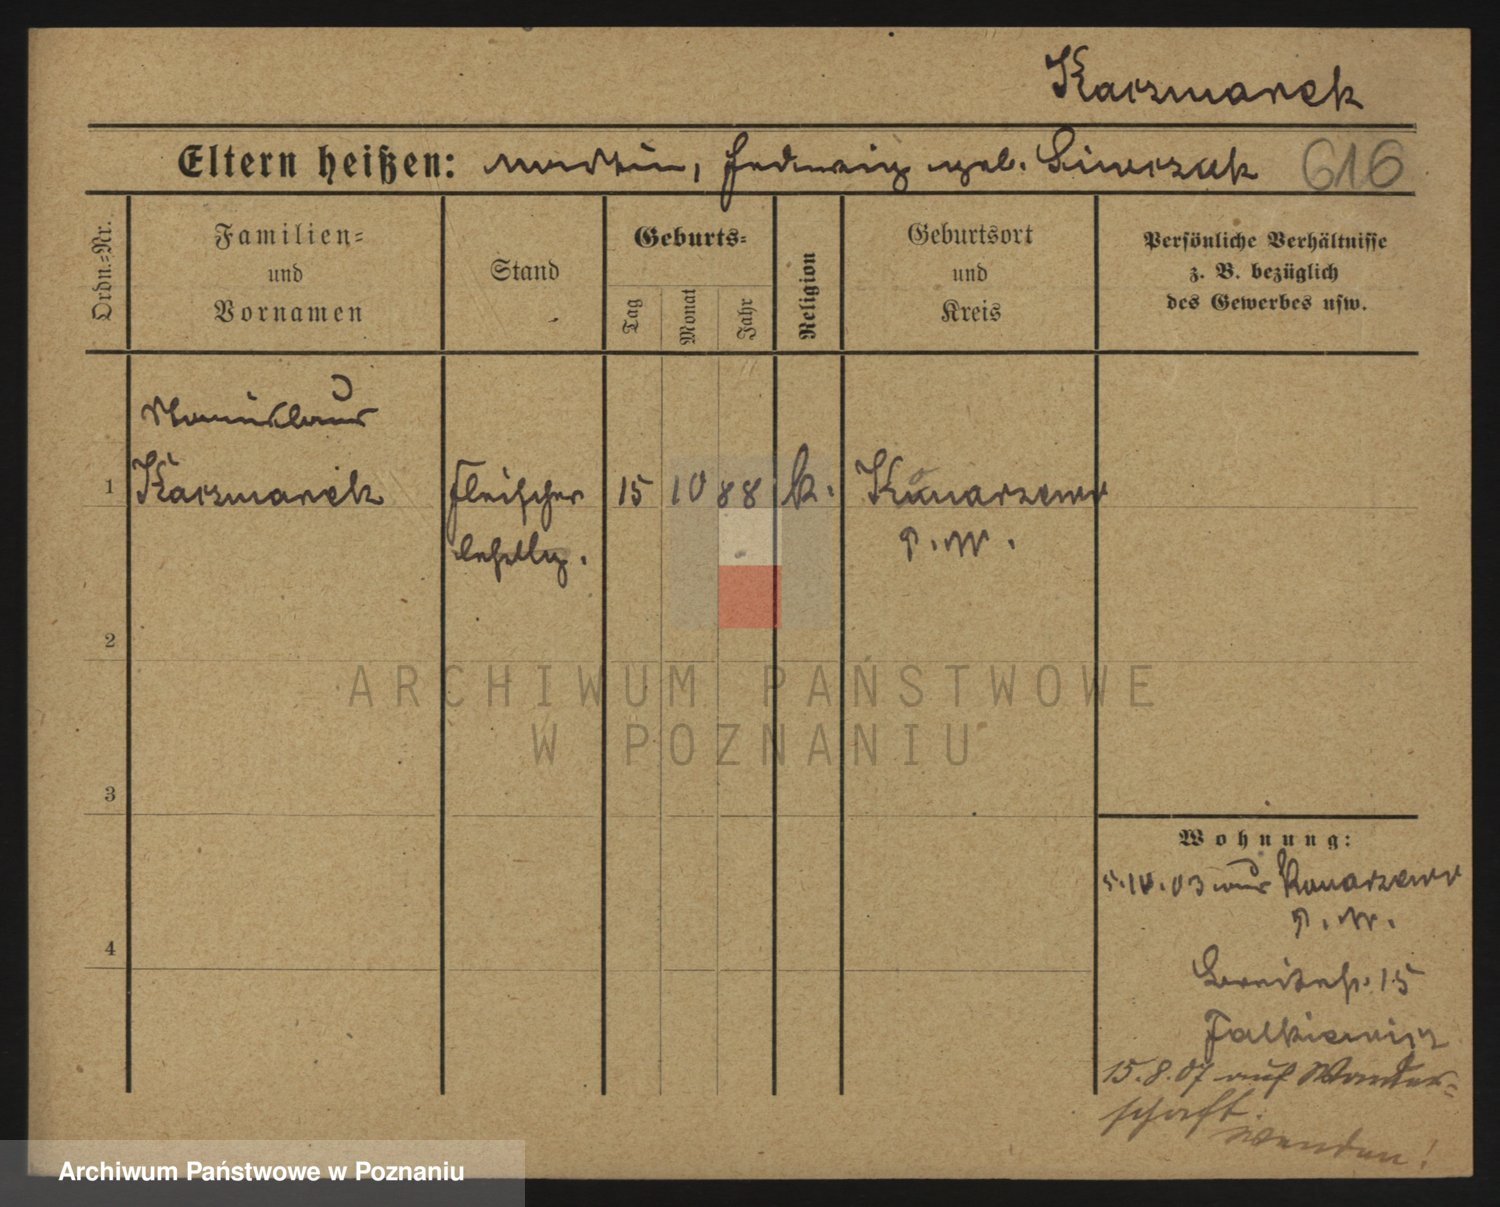 Kaczmarek
Eltern heißen: Martin, Hedwig geb. 616
Ordn.-Nr.
Familien-
und
Vornamen
Stand
Geburts-
Tag
Monat
Jahr
Religion
Geburtsort
und
Kreis
Persönliche Verhältnisse
z. B. bezüglich
des Gewerbes usw.
Stanislaus
1 Kaczmarek Fleischer 15 10 88 k. Konarzewo
P. W.
2
3
4
Wohnung:
5.10.03 aus Konarzewo
P. W.
Breitestr. 15
Falkiewicz
15.8.07 auf Wander-
schaft.
Wenden!
ARCHIWUM PAŃSTWOWE
W POZNANIU
Archiwum Państwowe w Poznaniu